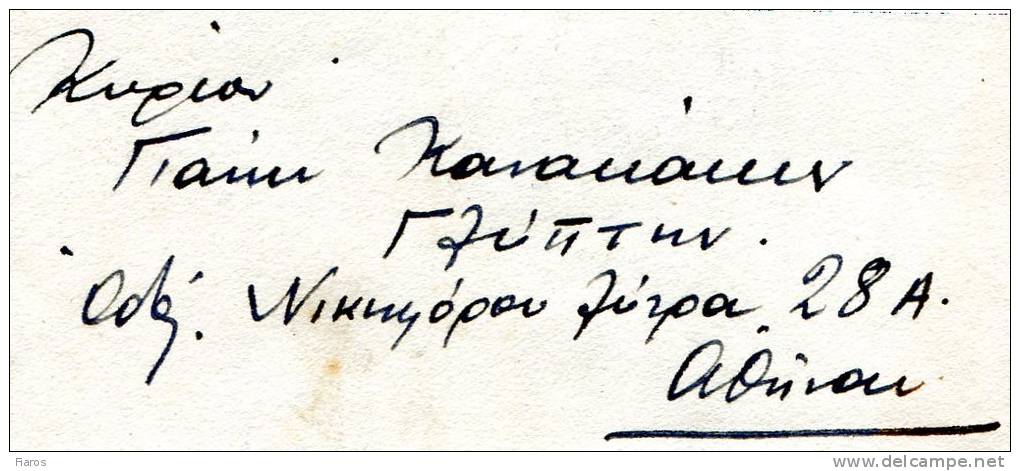 Κύριον
Γιάννη Κανακάκην
Γλύπτην.
Οδός. Νικηφόρου Λύτρα 28 Α.
Αθήναι
Raros
©delcampe.net